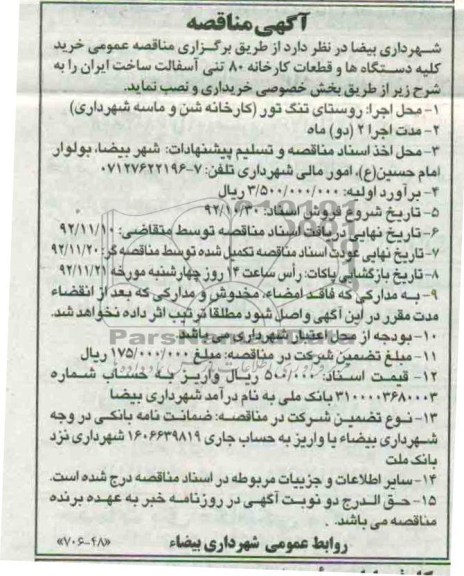 آگهی مناقصه
شهرداری بیضا در نظر دارد از طریق برگزاری مناقصه عمومی خرید
کلیه دستگاه ها و قطعات کارخانه ۸۰ تنی آسفالت ساخت ایران را به
شرح زیر از طریق بخش خصوصی خریداری و نصب نماید.
۱- محل اجرا: روستای تنگ تور (کارخانه شن و ماسه شهرداری)
۲- مدت اجرا ۲ (دو) ماه
۳- محل اخذ اسناد مناقصه و تسلیم پیشنهادات: شهر بیضا، بولوار
امام حسین(ع)، امور مالی شهرداری تلفن: ۷-۰۷۱۲۷۶۲۲۱۹۶
۴- برآورد اولیه: ۳/۵۰۰/۰۰۰/۰۰۰ ریال
۵- تاریخ شروع فروش اسناد: ۹۲/۱۰/۳۰
۶- تاریخ نهایی دریافت اسناد مناقصه توسط متقاضی: ۹۲/۱۱/۱۰
۷- تاریخ نهایی عودت اسناد مناقصه تکمیل شده توسط مناقصه گر: ۹۲/۱۱/۲۰
۸- تاریخ بازگشایی پاکات: رأس ساعت ۱۴ روز چهارشنبه مورخه ۹۲/۱۱/۲۱
۹- به مدارکی که فاقد امضاء، مخدوش و مدارکی که بعد از انقضاء
مدت مقرر در این آگهی واصل شود مطلقا ترتیب اثر داده نخواهد شد.
۱۰- بودجه از محل اعتبار شهرداری می باشد.
۱۱- مبلغ تضمین شرکت در مناقصه: مبلغ ۱۷۵/۰۰۰/۰۰۰ ریال
۱۲- قیمت اسناد: ۵۰۰/۰۰۰ ریال واریز به حساب شماره
۳۱۰۰۰۰۳۶۸۰۰۰۳ بانک ملی به نام درآمد شهرداری بیضا
۱۳- نوع تضمین شرکت در مناقصه: ضمانت نامه بانکی در وجه
شهرداری بیضاء یا واریز به حساب جاری ۱۶۰۶۶۳۹۸۱۹ شهرداری نزد
بانک ملت
۱۴- سایر اطلاعات و جزییات مربوطه در اسناد مناقصه درج شده است.
۱۵- حق الدرج دو نوبت آگهی در روزنامه خبر به عهده برنده
مناقصه می باشد.
روابط عمومی شهرداری بیضاء
«۷۰۶-۴۸»